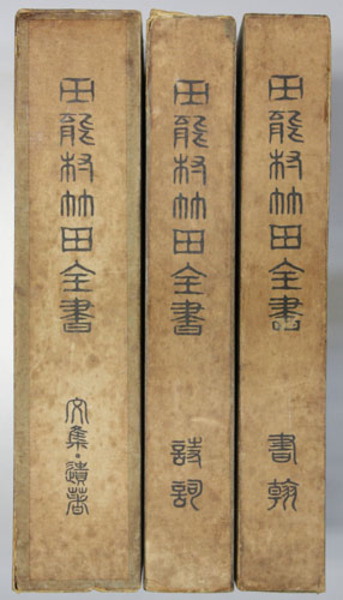 田能村竹田全書
文集・遺著
田能村竹田全書
詩詞
田能村竹田全書
書翰